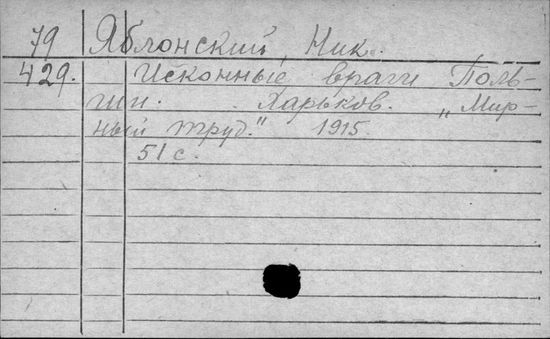 79 Яблонский, Ник.
429. Исконные враги Поль-
ши. Харьков. „Мир-
ный труд." 1915.
51 с.